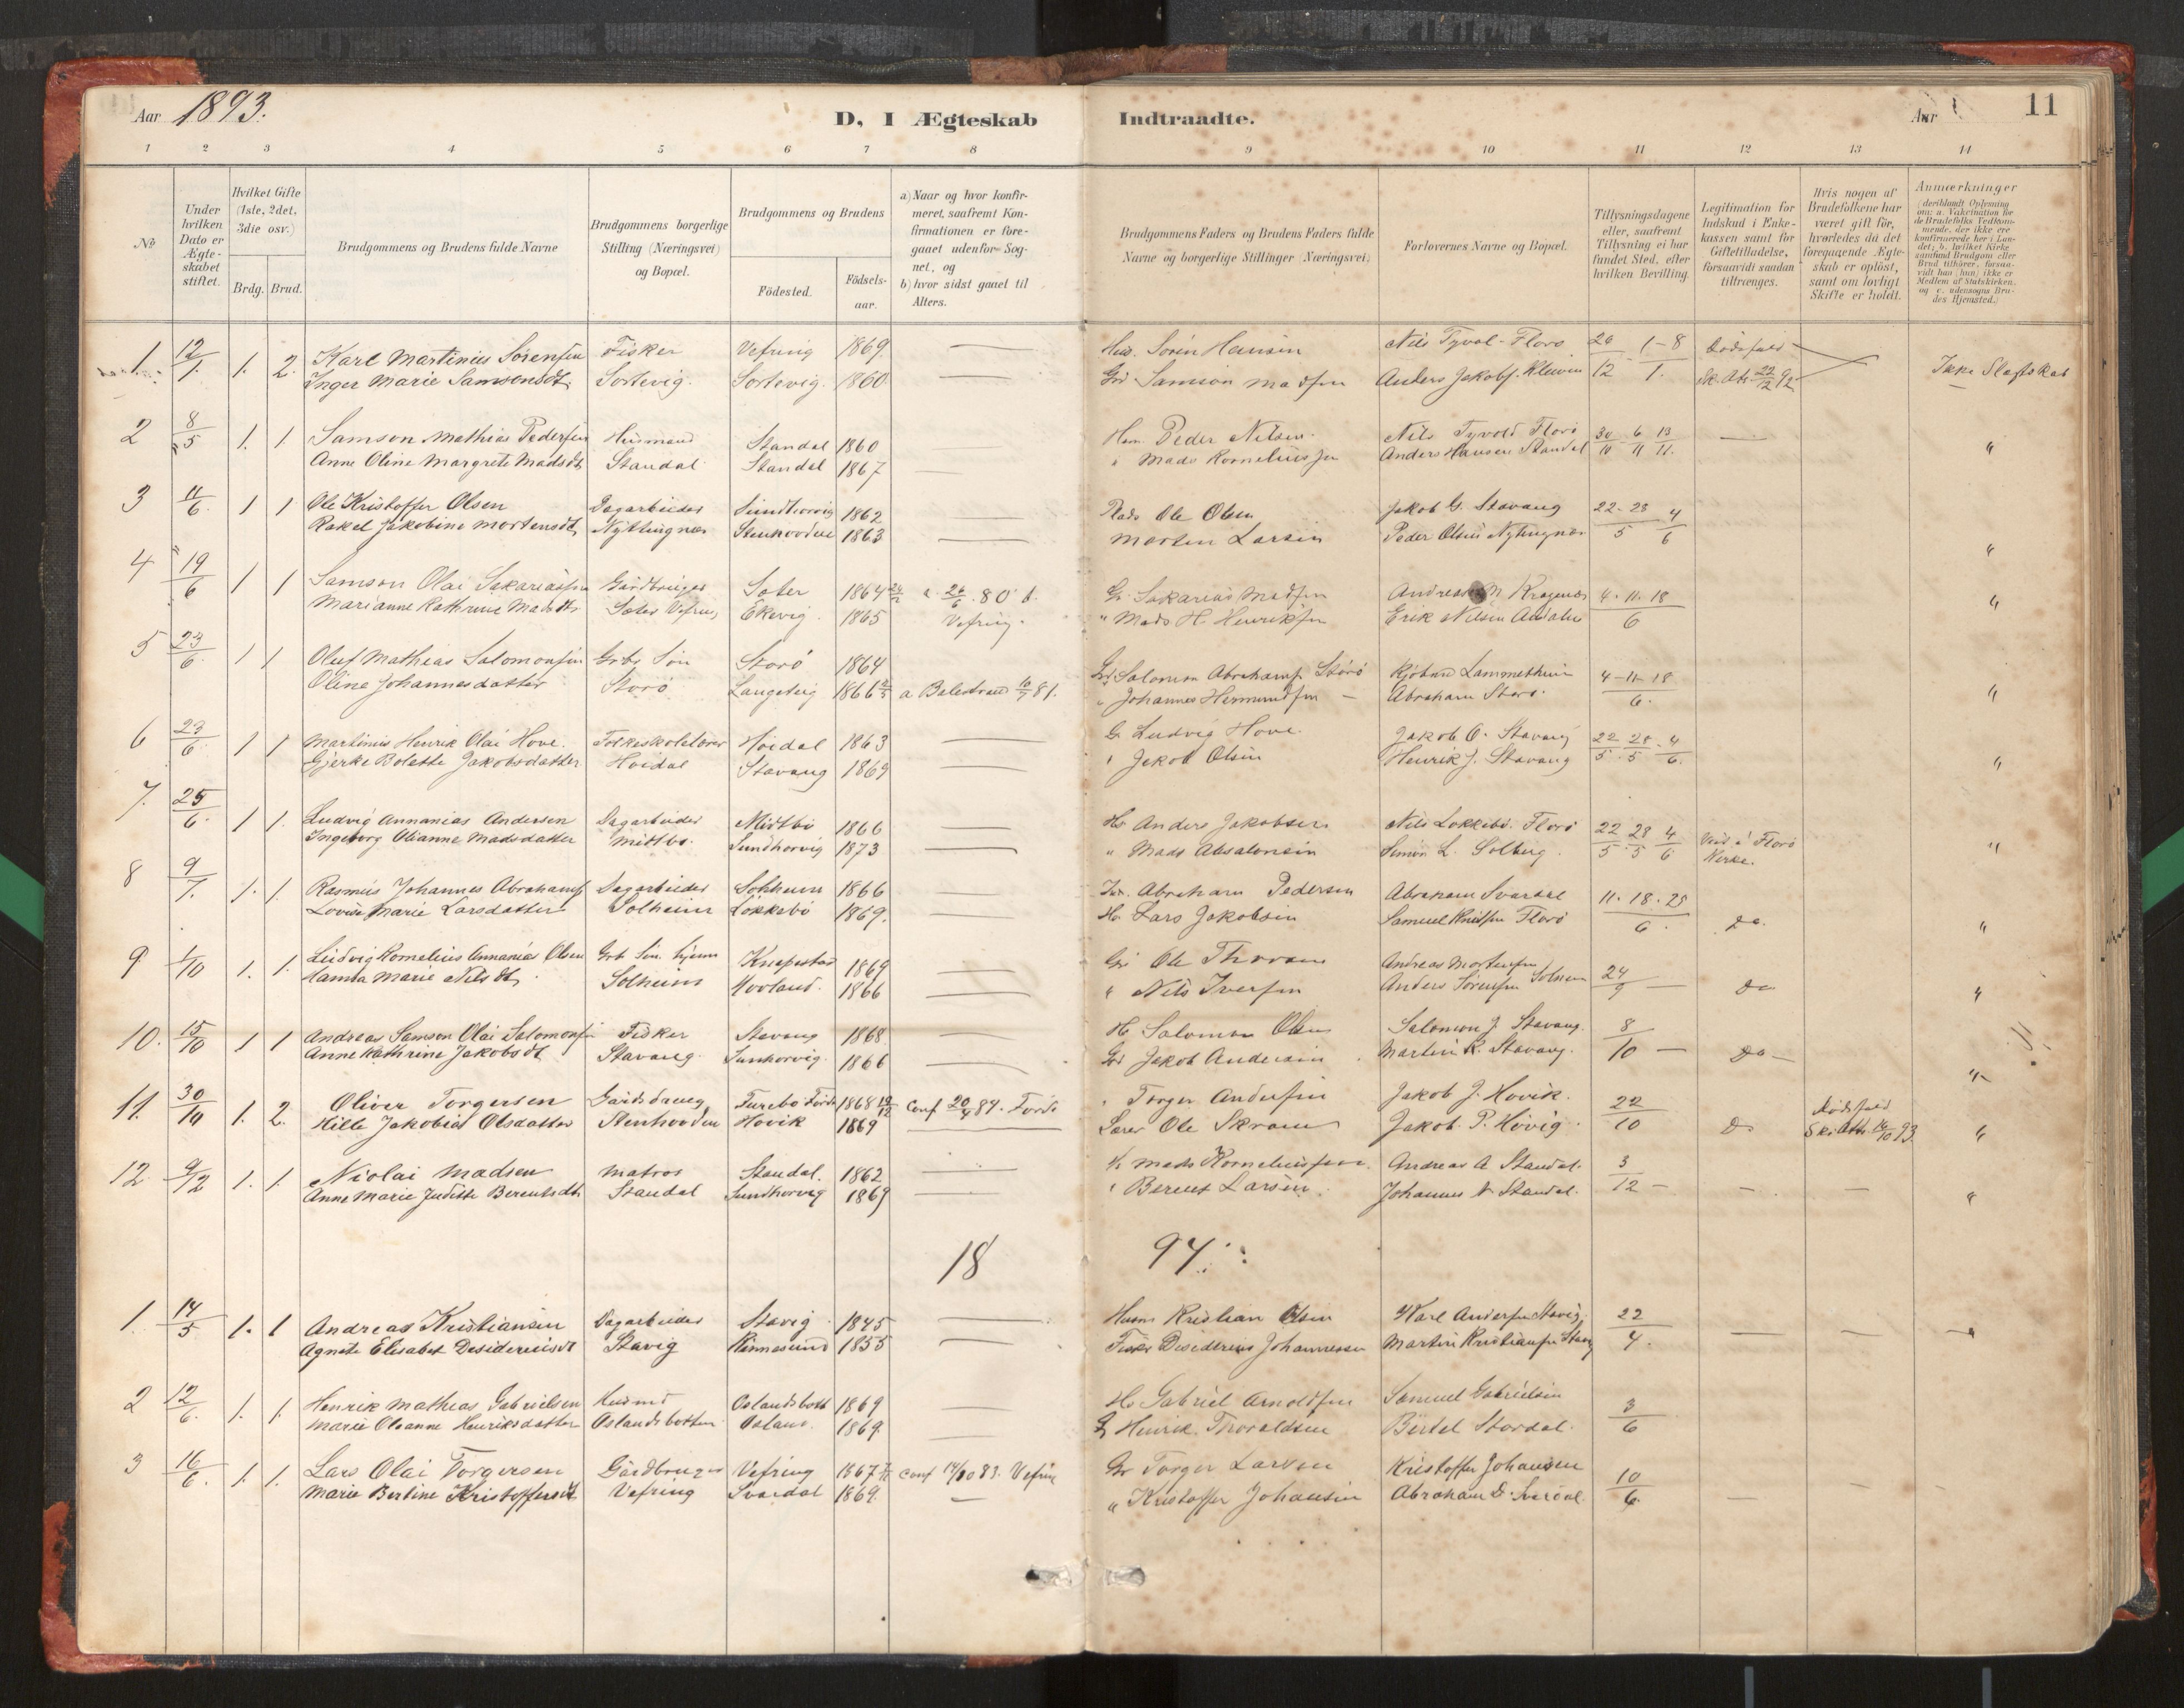 Aar 1893.
D, I Ægteskab Indtraadte.
Aar 11
1 2 3 4 5 6 7 8 9 10 11 12 13 14
No
Under hvilken Dato er Ægteskabet stiftet.
Hvilket Gifte (1ste, 2det, 3die osv.)
Brdg. Brud.
Brudgommens og Brudens fulde Navne
Brudgommens borgerlige Stilling (Næringsvei) og Bopæl.
Brudgommens og Brudens
Födested.
Födselsaar.
a) Naar og hvor konfirmeret, saafremt Konfirmationen er foregaaet udenfor Sognet, og
b) hvor sidst gaaet til Alters.
Brudgommens Faders og Brudens Faders fulde Navne og borgerlige Stillinger (Næringsvei)
Forlovernes Navne og Bopæl.
Tillysningsdagene eller, saafremt Tillysning ei har fundet Sted, efter hvilken Bevilling.
Legitimation for Indskud i Enkekassen samt for Giftetilladelse, forsaavidt saadan tiltrænges.
Hvis nogen af Brudefolkene har været gift för, hvorledes da det foregaaende Ægteskab er oplöst, samt om lovligt Skifte er holdt.
Anmærkninger (deriblandt Oplysning om: a. Vakcination for de Brudefolks Vedkommende, der ikke ere konfirmerede her i Landet; b. hvilket Kirkesamfund Brudgom eller Brud tilhörer, forsaavidt han (hun) ikke er Medlem af Statskirken, og c. udensogns Brudes Hjemsted.)
1. 12/1. 1. 2. Karl Martinius Sörensen Fisker Vefring 1869. Hus. Sören Hansen Nils Tyvol-Florö 20 1-8 Dödsfald
Inger Marie Samsonsdt. Sortevig. Sortevig. 1860 Gbr Samson Madsen Anders Jakobs. Kleiven 12 1. Sk. Att. 22/12 92 Ikke Slegtskab
2 8/5 1. 1. Samson Mathias Pedersen Husmand Standal 1860 Hm. Peder Nilsen. Nils Tyvold Florö 30/10 6/11 13/11.
Anne Oline Margrete Madsdt. Standal Standal 1867 " Mads Korneliussen Anders Hansen Standal
3 11/6. 1 1 Ole Kristoffer Olsen Dagarbeider Sundhorvig 1862 Ole Olsen Jakob G. Stavang 22. 28 4
Rakel Jakobine Mortensdt. Nyttingnæs Stenhovden 1863 Morten Larsen Peder Olsen Nyttingnæs 5 6
4 19/6 1 1 Samson Olai Sakariassen Gårdbruger Sæter 1864 a. 26/6. 80 i Gb. Sakarias Madsen Andreas M Kragenæs 4. 11. 18
Marianne Kathrine Madsdtr. Sæter Vefring Ekevig 1865 Vefring. " Mads H. Henriksen Erik Nilsen 6
5 23/6. 1 1 Oluf Mathias Salomonsen Grbr Sön Storö 1864 Gbr Salomon Abrahams. Störö 4-11-18
Oline Johannesdatter Storö Langeteig 1866 a Balestrand 81. " Johannes Hermundsen — Abraham Storö. 6.
6 23/6. 1 1 Martinius Henrik Olai Hove. Folkeskolelærer Höidal 1863 G. Ludvig Hove. Jakob O. Stavang 22 28 4
Gjerke Bolette Jakobsdatter Höidal Stavang 1869 " Jakob Olsen Henrik J. Stavang 5 5 6.
7. 25/6. 1 1. Ludvig Annanias Andersen Dagarbeider Midtbö 1866 Hs Anders Jakobsen Nils Lökkebö. Florö 22 28 4 Vied i Florö
Ingeborg Olianne Madsdatter Midtbö. Sundhorvig 1873 " Mads Absalonsen Simon L. Solberg. 5 5 6 Kirke.
8 9/7. 1. 1. Rasmus Johannes Abrahams. Dagarbeider Solheim 1866 Abraham Pedersen Abraham Svardal 11. 18. 25
Lovise Marie Larsdatter Solheim Lökkebö 1869. Hs. Lars Jakobsen Samuel Knudsen Florö 6. Do.
9 1/10 1. 1. Ludvig Kornelius Annanias Olsen Grb Sön hjem Knapstad 1869 Gbr Ole Andreas Mortensen 24
Hanna Marie Nilsdt. Solheim Hovland. 1866 " Nils Iversen Anders Sörensen Solheim 9 Do
10. 15/10 1 1 Andreas Samson Olai Salomonsen Fisker Stavang 1868 H. Salomon Olsen Salomon J. Stavang. 8
Anne Kathrine Jakobsdt Stavang. Sunhorvig. 1866 Gbr Jakob Andersen Martin K. Stavang. 10 — Do —
11. 30/10 1. 2. Oliver Torgersen Gårdsdreng Furebö Förde 1868 19/12 Conf 20/4 84. Förde " Torger Andersen Jakob J. Hovik. 22 Dödsfald
Hille Jakobia Olsdatter Stenhovden Hovik 1869 Lærer Ole Skram Jakob P. Hövig. 10 Do Sk. Att. 14/10 93.
12. 9/12 1. 1. Nikolai Madsen Matros Standal. 1862 H. Mads Korneliussen. Andreas A Standal. 3
Anne Marie Juditte Berentsdtr. Standal Sundhorvig 1869 " Berent Larsen. Johannes N Standal. 12 —
18 94.
1. 14/5 1. 1 Andreas Kristiansen Dagarbeider Stavig 1845 Husm Kristian Olsen Karl Andersen Stavig 22
Agnete Elisabet Desideriusdt Stavig Rinnesund 1855 Fisker Desiderius Johannessen Martin Kristiansen Stavig 4.
2 12/6. 1. 1. Henrik Mathias Gabrielsen Husmd Oslandsbott 1869 Hs Gabriel Arnoldsen Samuel Gabrielsen 3
Marie Olianne Henriksdatter Oslandsbotten Osland. 1869. G Henrik Thoraldsen Bertel Stordal. 6
3 16/6. 1. 1. Lars Olai Torgersen Gårdbruger Vefring 1867 Conf 14/10 83. Vefring Gbr Torger Larsen Kristoffer Johansen 10
Marie Bertine Kristoffersdt Vefring Svardal 1869. " Kristoffer Johansen Abraham D. Svardal. 6.